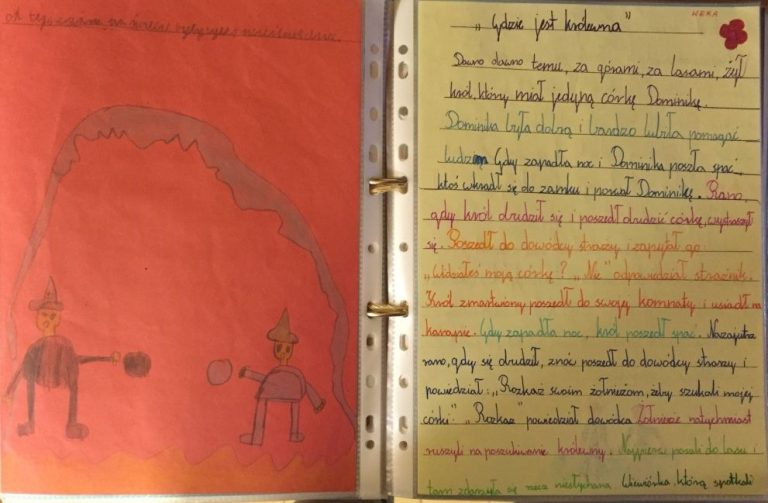 od tego czasu na zamku
„Gdzie jest królewna"
WERA
Dawno dawno temu, za górami, za lasami, żył
król, który miał jedyną córkę Dominikę.
Dominika była dobrą i bardzo lubiła pomagać
ludziom Gdy zapadła noc i Dominika poszła spać,
ktoś wkradł się do zamku i porwał Dominikę. Rano,
gdy król obudził się i poszedł obudzić córkę, wystraszył
się. Poszedł do dowódcy straży i zapytał go
„Widziałeś moją córkę? „Nie" odpowiedział strażnik.
Król zmartwiony poszedł do swojej komnaty i usiadł na
kanapie. Gdy zapadła noc, król poszedł spać. Nazajutrz
rano, gdy się obudził, znów poszedł do dowódcy straży i
powiedział: „Rozkaż swoim żołnieżom, żeby szukali mojej
córki" „Rozkaz" powiedział dowódca Żołnierze natychmiast
ruszyli na poszukiwanie królewny. Najpierw poszli do lasu i
tam zdarzyła się rzecz niesłychana. Wiewiórka, którą spotkali